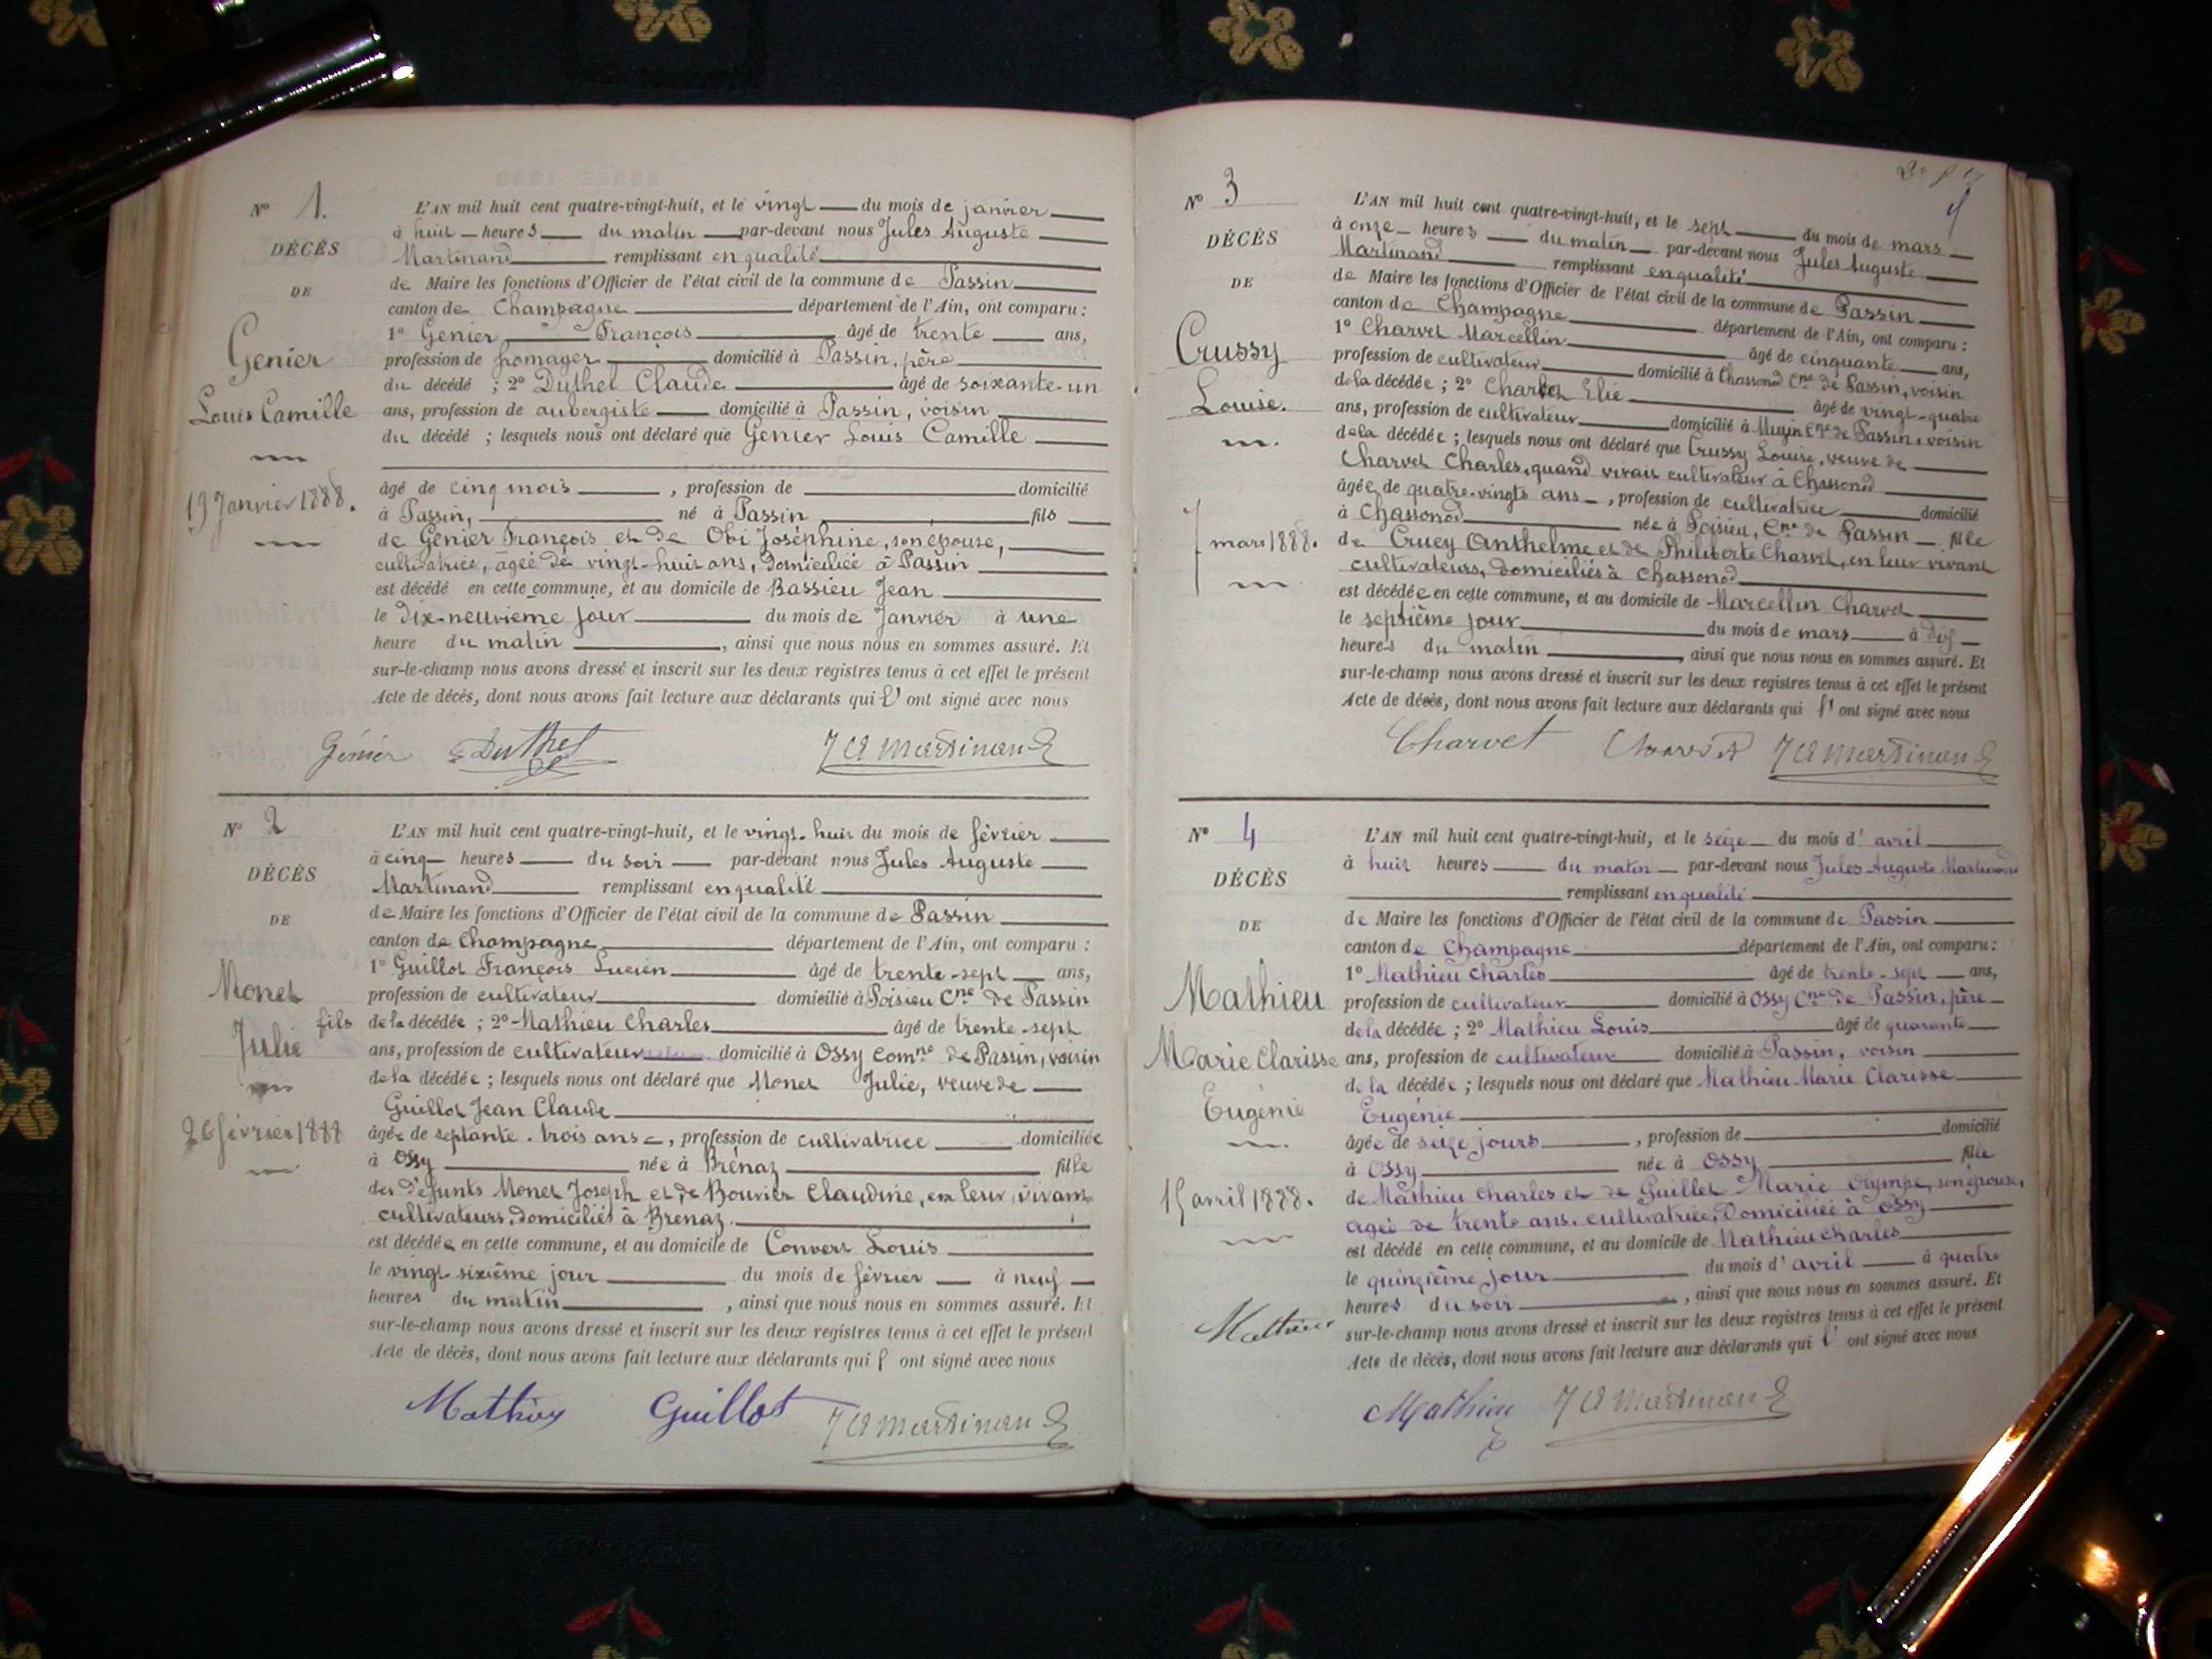 N° 1.
DÉCÈS
DE
Genier
Louis Camille
19 Janvier 1888.
L'AN mil huit cent quatre-vingt-huit, et le vingt du mois de janvier
à huit heures du matin par-devant nous Jules Auguste
Martinand remplissant en qualité
de Maire les fonctions d'Officier de l'état civil de la commune de Passin
canton de Champagne département de l'Ain, ont comparu :
1° Genier François âgé de trente ans,
profession de fromager domicilié à Passin, père
du décédé ; 2° Duthel Claude âgé de soixante-un
ans, profession de aubergiste domicilié à Passin, voisin
du décédé ; lesquels nous ont déclaré que Genier Louis Camille
âgé de cinq mois, profession de domicilié
à Passin, né à Passin fils
de Genier François et de Obi Joséphine, son épouse,
cultivatrice, âgée de vingt-huit ans, domiciliée à Passin
est décédé en cette commune, et au domicile de Bassieu Jean
le dix-neuvième jour du mois de Janvier à une
heure du matin, ainsi que nous nous en sommes assuré. Et
sur-le-champ nous avons dressé et inscrit sur les deux registres tenus à cet effet le présent
Acte de décès, dont nous avons fait lecture aux déclarants qui l' ont signé avec nous
Génier Duthel J A Martinand
N° 2
DÉCÈS
DE
Monet
Julie
26 février 1888
L'AN mil huit cent quatre-vingt-huit, et le vingt-huit du mois de février
à cinq heures du soir par-devant nous Jules Auguste
Martinand remplissant en qualité
de Maire les fonctions d'Officier de l'état civil de la commune de Passin
canton de Champagne département de l'Ain, ont comparu :
1° Guillot François Lucien âgé de trente-sept ans,
profession de cultivateur domicilié à Poisieu Cne de Passin
fils de la décédée ; 2° Mathieu Charles âgé de trente-sept
ans, profession de cultivateur domicilié à Ossy Comne de Passin, voisin
de la décédée ; lesquels nous ont déclaré que Monet Julie, veuve de
Guillot Jean Claude
âgée de septante-trois ans, profession de cultivatrice domiciliée
à Ossy née à Brénaz fille
des défunts Monet Joseph et de Bouvier Claudine, en leur vivant
cultivateurs, domiciliés à Brenaz.
est décédée en cette commune, et au domicile de Convert Louis
le vingt sixième jour du mois de février à neuf
heures du matin, ainsi que nous nous en sommes assuré. Et
sur-le-champ nous avons dressé et inscrit sur les deux registres tenus à cet effet le présent
Acte de décès, dont nous avons fait lecture aux déclarants qui l' ont signé avec nous
Mathieu Guillot J A Martinand
N° 3
DÉCÈS
DE
Crussy
Louise.
7 mars 1888.
L'AN mil huit cent quatre-vingt-huit, et le sept du mois de mars
à onze heures du matin par-devant nous Jules Auguste
Martinand remplissant en qualité
de Maire les fonctions d'Officier de l'état civil de la commune de Passin
canton de Champagne département de l'Ain, ont comparu :
1° Charvet Marcellin âgé de cinquante ans,
profession de cultivateur domicilié à Chassonod Cne de Passin, voisin
de la décédée ; 2° Charvet Elie âgé de vingt-quatre
ans, profession de cultivateur domicilié à Muzin Cne de Passin, voisin
de la décédée ; lesquels nous ont déclaré que Crussy Louise, veuve de
Charvet Charles, quand vivait cultivateur à Chassonod
âgée de quatre-vingts ans, profession de cultivatrice domicilié
à Chassonod née à Poisieu, Cne de Passin fille
de Crucy Anthelme et de Philiberte Charvet, en leur vivant
cultivateurs, domiciliés à Chassonod
est décédée en cette commune, et au domicile de Marcellin Charvet
le septième jour du mois de mars à dix
heures du matin, ainsi que nous nous en sommes assuré. Et
sur-le-champ nous avons dressé et inscrit sur les deux registres tenus à cet effet le présent
Acte de décès, dont nous avons fait lecture aux déclarants qui l' ont signé avec nous
Charvet Charvet J A Martinand
N° 4
DÉCÈS
DE
Mathieu
Marie Clarisse
Eugénie
15 avril 1888.
L'AN mil huit cent quatre-vingt-huit, et le seize du mois d'avril
à huit heures du matin par-devant nous Jules Auguste Martinand
remplissant en qualité
de Maire les fonctions d'Officier de l'état civil de la commune de Passin
canton de Champagne département de l'Ain, ont comparu :
1° Mathieu Charles âgé de trente-sept ans,
profession de cultivateur domicilié à Ossy Cne de Passin, père
de la décédée ; 2° Mathieu Louis âgé de quarante
ans, profession de cultivateur domicilié à Passin, voisin
de la décédée ; lesquels nous ont déclaré que Mathieu Marie Clarisse
Eugénie
âgée de seize jours, profession de domicilié
à Ossy née à Ossy fille
de Mathieu Charles et de Guillot Marie Olympe, son épouse,
agée de trente ans, cultivatrice, domiciliée à Ossy
est décédé en cette commune, et au domicile de Mathieu Charles
le quinzième jour du mois d'avril à quatre
heures du soir, ainsi que nous nous en sommes assuré. Et
sur-le-champ nous avons dressé et inscrit sur les deux registres tenus à cet effet le présent
Acte de décès, dont nous avons fait lecture aux déclarants qui l' ont signé avec nous
Mathieu
Mathieu J A Martinand